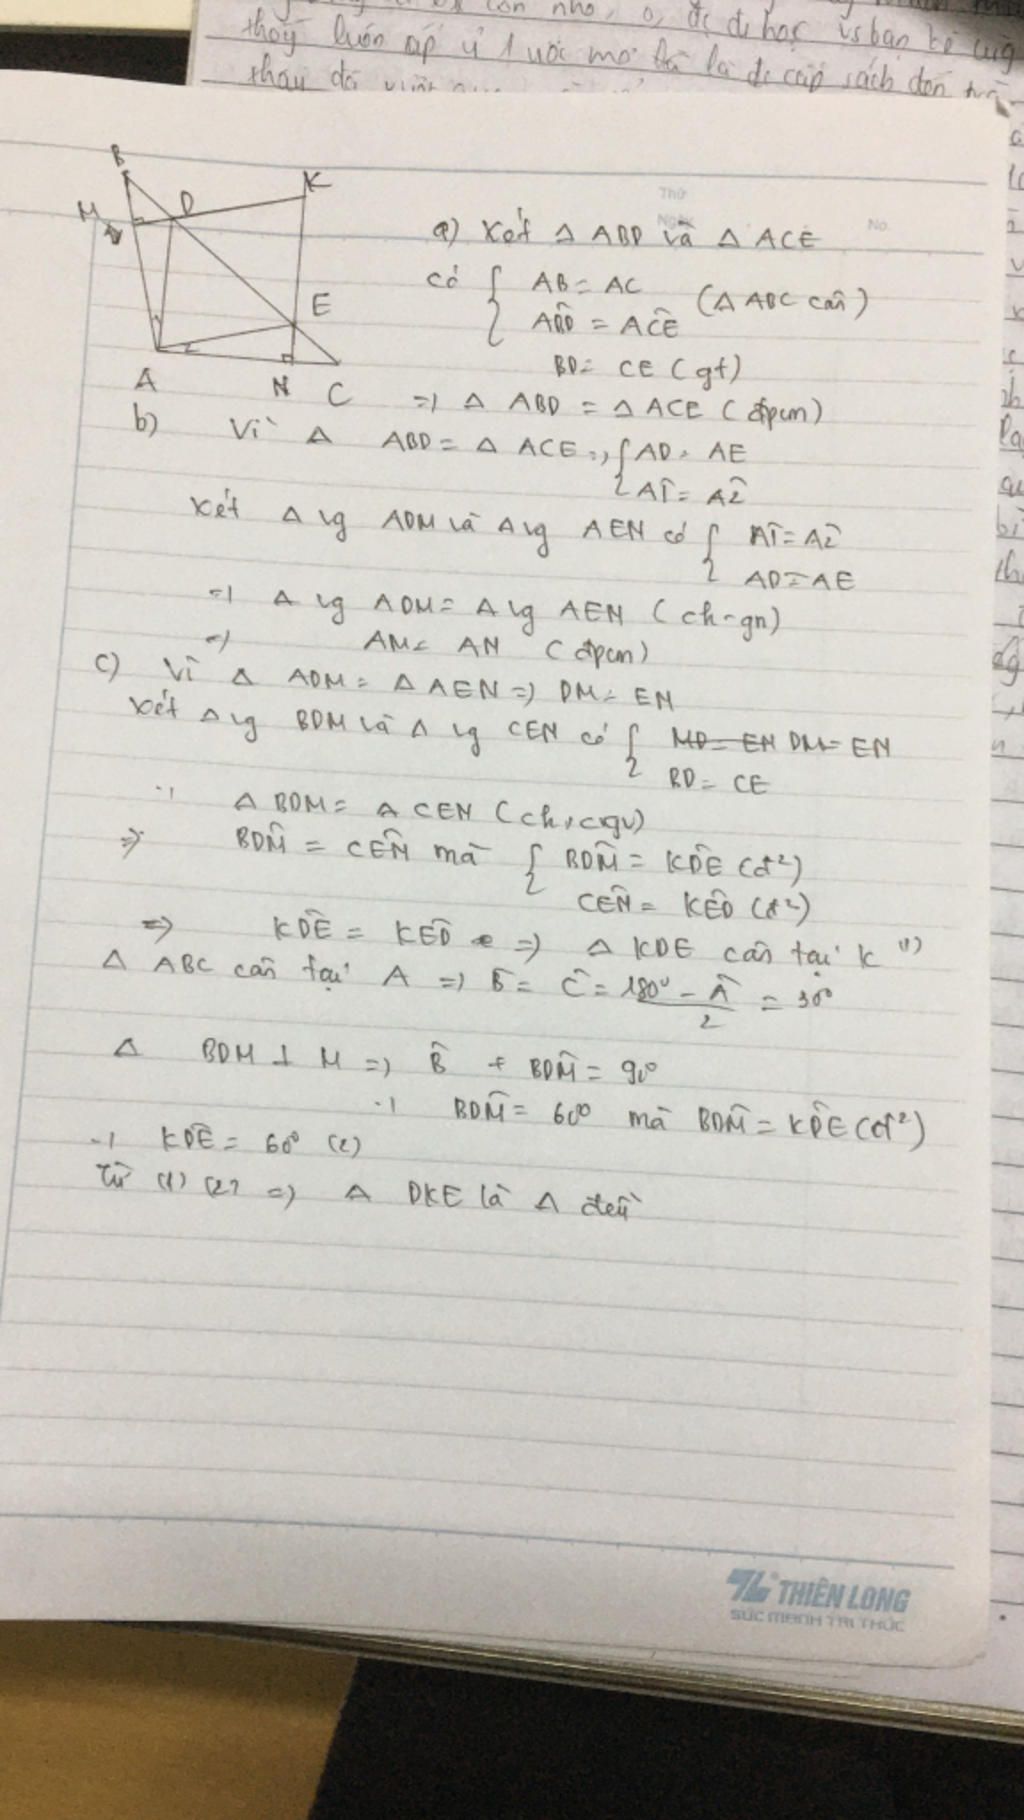 thấy luôn ấp ủ 1 ước mơ đó là đc cắp sách đến
B
K
M
D
E
A
N
C
Thứ
Ngày
No.
a) Xét Δ ABD và Δ ACE
có { AB = AC (Δ ABC cân)
ABD̂ = AĈE
BD = CE (gt)
=> Δ ABD = Δ ACE (đpcm)
b) Vì Δ ABD = Δ ACE => { AD = AE
Â1 = Â2
Xét Δ vg ADM và Δ vg AEN có { Â1 = Â2
AD = AE
=> Δ vg ADM = Δ vg AEN (ch-gn)
=> AM = AN (đpcm)
c) Vì Δ ADM = Δ AEN => DM = EN
Xét Δ vg BDM và Δ vg CEN có { MD = EN DM = EN
BD = CE
=> Δ BDM = Δ CEN (ch, cgv)
=> BD̂M = CÊN mà { BD̂M = KD̂E (đ²)
CÊN = KÊD (đ²)
=> KD̂E = KÊD => Δ KDE cân tại K (1)
Δ ABC cân tại A => B̂ = Ĉ = 180° - Â / 2 = 30°
Δ BDM ⊥ M => B̂ + BD̂M = 90°
=> BD̂M = 60° mà BD̂M = KD̂E (đ²)
=> KD̂E = 60° (2)
Từ (1) (2) => Δ DKE là Δ đều
THIÊN LONG
SỨC MẠNH TRI THỨC